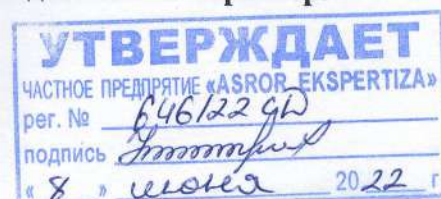 УТВЕРЖДАЕТ
ЧАСТНОЕ ПРЕДПРЯТИЕ «ASROR EKSPERTIZA»
рег. № 646/22 GD
подпись
« 8 » июня 2022 г